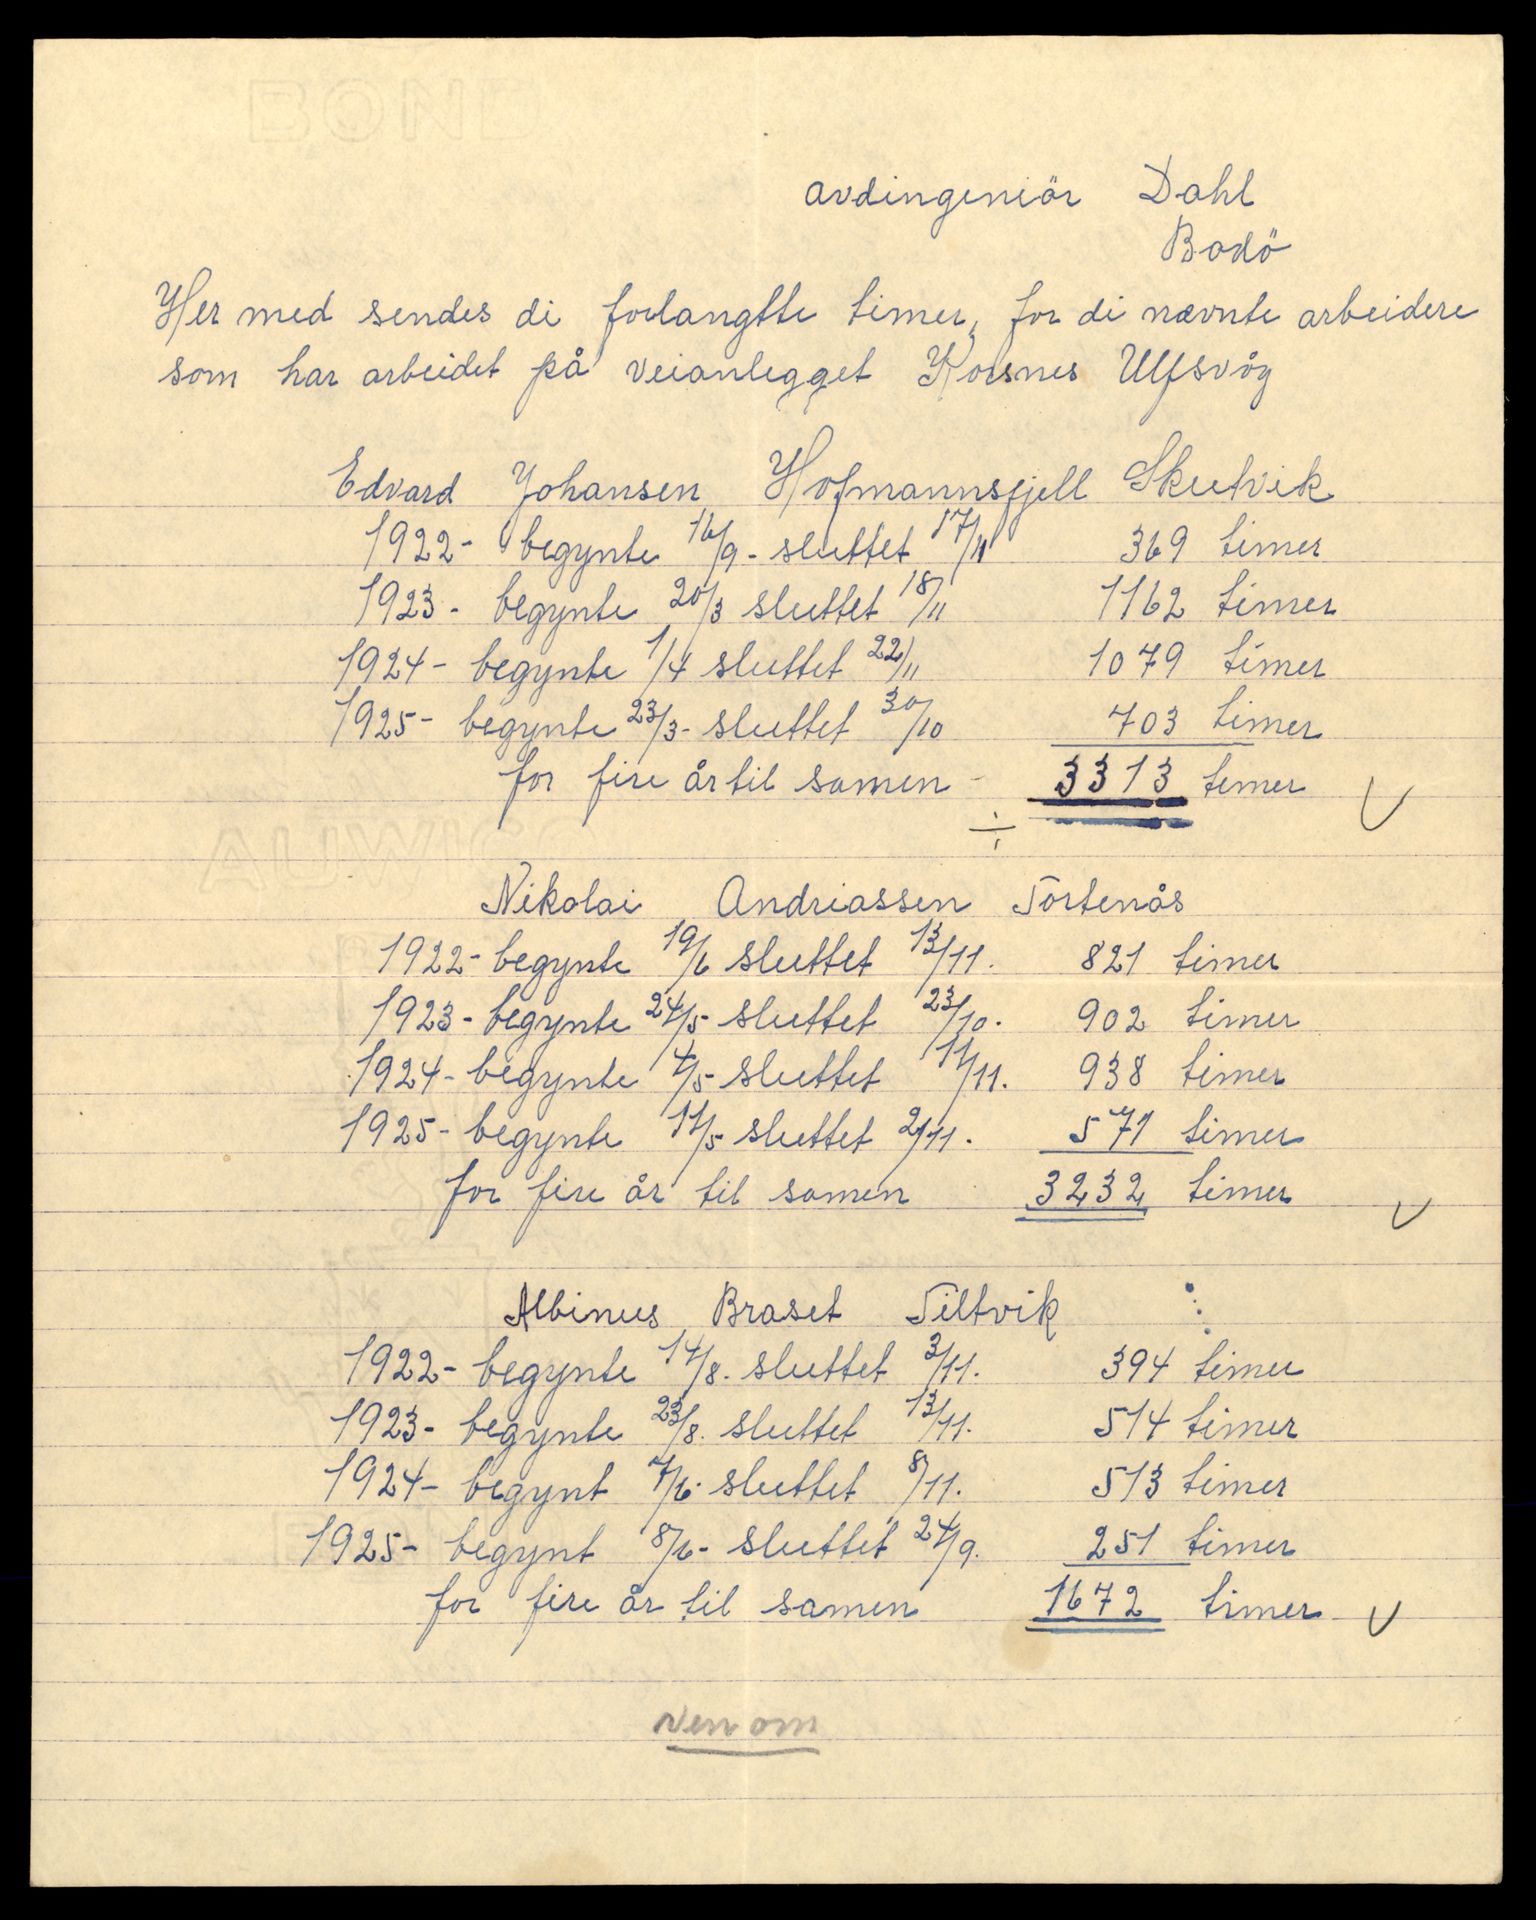 avdingeniör Dahl
Bodö
Her med sendes di forlangtte timer, for di nævnte arbeidere
som har arbeidet på veianlegget Korsnes Ulfsvåg
Edvard Johansen Hofmannsfjell Skutvik
1922 - begynte 16/9 - sluttet 17/11 369 timer
1923 - begynte 20/3 sluttet 18/11 1162 timer
1924 - begynte 1/4 sluttet 22/11 1079 timer
1925 - begynte 23/3 - sluttet 30/10 703 timer
for fire år til samen - 3313 timer
÷
Nikolai Andriassen Tortenås
1922 - begynte 19/6 sluttet 13/11. 821 timer
1923 - begynte 24/5 sluttet 23/10. 902 timer
1924 - begynte 4/5 sluttet 11/11. 938 timer
1925 - begynte 11/5 sluttet 2/11. 571 timer
for fire år til samen 3232 timer
Albinus Braset Tiltvik
1922 - begynte 14/8. sluttet 3/11. 394 timer
1923 - begynte 23/8. sluttet 13/11. 514 timer
1924 - begynt 7/6. sluttet 8/11. 513 timer
1925 - begynt 8/6 - sluttet 24/9. 251 timer
for fire år til samen 1672 timer
Ven om
BOND